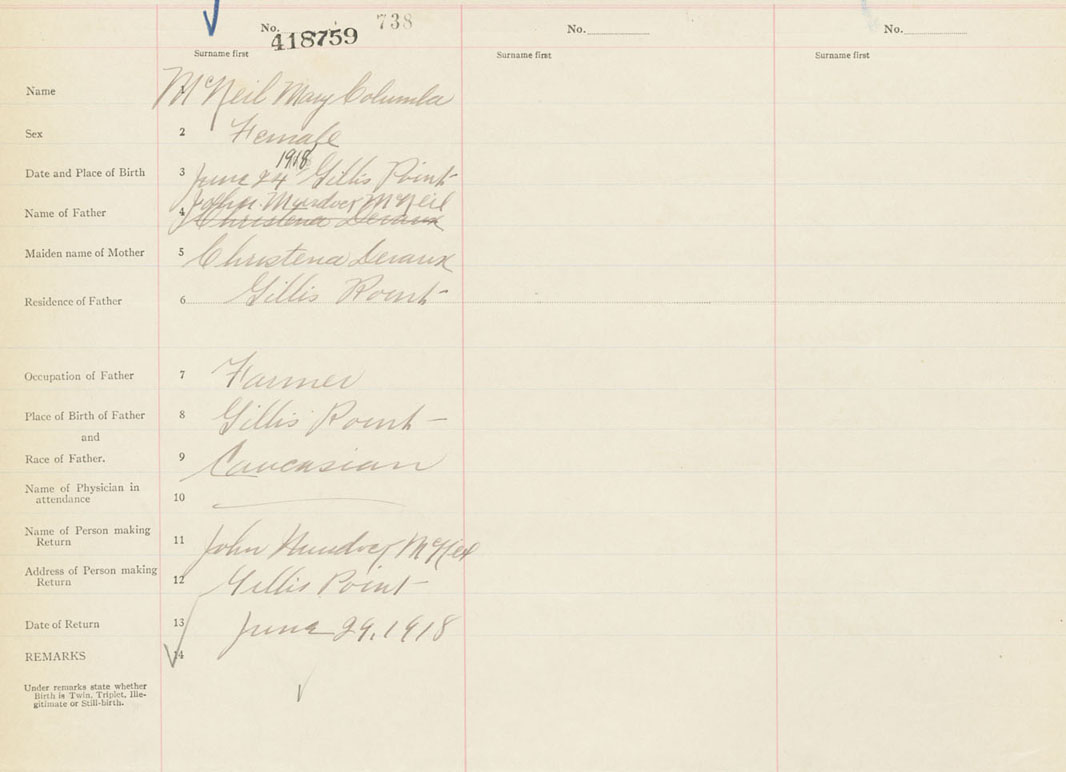 738
No. 418759 No. No.
Surname first Surname first Surname first
Name 1 McNeil Mary Columba
Sex 2 Female
1918
Date and Place of Birth 3 June 24 Gillis Point
John Murdock McNeil
Name of Father 4 Christena Devaux
Maiden name of Mother 5 Christena Devaux
Residence of Father 6 Gillis Point
Occupation of Father 7 Farmer
Place of Birth of Father 8 Gillis Point
and
Race of Father. 9 Caucasian
Name of Physician in
attendance 10
Name of Person making
Return 11 John Murdock McNeil
Address of Person making
Return 12 Gillis Point
Date of Return 13 June 29, 1918
REMARKS 14
Under remarks state whether
Birth is Twin, Triplet, Ille-
gitimate or Still-birth.